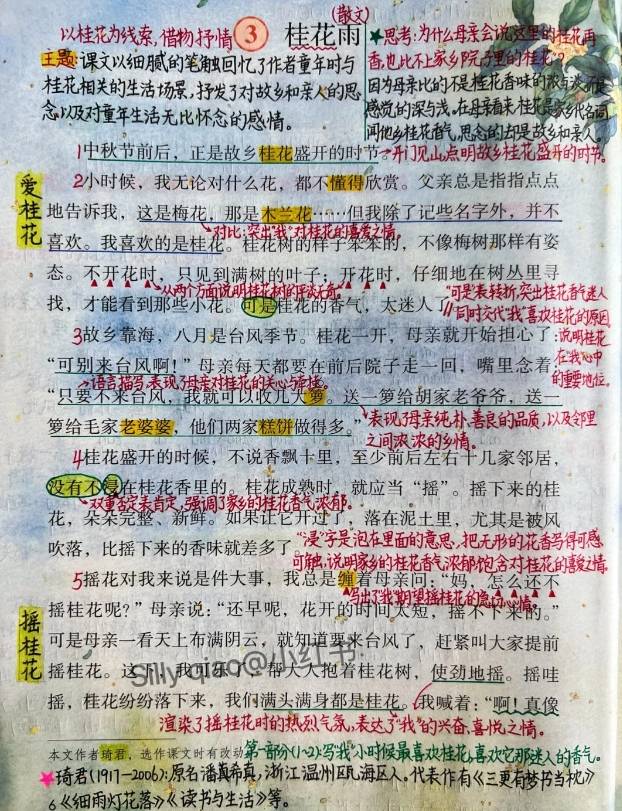 以桂花为线索,借物抒情
③ 桂花雨
(散文)
主题:课文以细腻的笔触回忆了作者童年时与
桂花相关的生活场景,抒发了对故乡和亲人的思
念以及对童年生活无比怀念的感情。
★思考:为什么母亲会说这里的桂花再
香,也比不上家乡院子里的桂花?
因为母亲比的不是桂花香味的浓与淡,而是
感觉的深与浅。在母亲看来,桂花是家乡代名词
闻他乡桂花香气,思念的却是故乡和亲人。
1中秋节前后,正是故乡桂花盛开的时节。
开门见山,点明故乡桂花盛开的时节。
爱桂花
2小时候,我无论对什么花,都不懂得欣赏。父亲总是指指点点
地告诉我,这是梅花,那是木兰花……但我除了记些名字外,并不
喜欢。我喜欢的是桂花。桂花树的样子笨笨的,不像梅树那样有姿
对比:突出"我"对桂花的喜爱之情。
态。不开花时,只见到满树的叶子;开花时,仔细地在树丛里寻
从两个方面说明桂花树的平淡无奇。
找,才能看到那些小花。可是桂花的香气,太迷人了
"可是"表转折,突出桂花香气迷人
同时交代"我"喜欢桂花的原因
说明桂花
在我心中
的重要地位。
3故乡靠海,八月是台风季节。桂花一开,母亲就开始担心了:
"可别来台风啊!"母亲每天都要在前后院子走一回,嘴里念着:
语言描写,表现了母亲对桂花的关心与牵挂。
"只要不来台风,我就可以收几大箩。送一箩给胡家老爷爷,送一
箩给毛家老婆婆,他们两家糕饼做得多。"
表现了母亲纯朴、善良的品质,以及邻里
之间浓浓的乡情。
4桂花盛开的时候,不说香飘十里,至少前后左右十几家邻居,
没有不浸在桂花香里的。桂花成熟时,就应当"摇"。摇下来的桂
双重否定表肯定,强调了家乡的桂花香气浓郁。
花,朵朵完整、新鲜。如果让它开过了,落在泥土里,尤其是被风
吹落,比摇下来的香味就差多了
"浸"字是泡在里面的意思,把无形的花香写得可感
可触,说明家乡的桂花香气浓郁,饱含对桂花的喜爱之情。
摇桂花
5摇花对我来说是件大事,我总是缠着母亲问:"妈,怎么还不
写出了"我"期望摇桂花的急切心情。
摇桂花呢?"母亲说:"还早呢,花开的时间太短,摇不下来的。"
可是母亲一看天上布满阴云,就知道要来台风了,赶紧叫大家提前
摇桂花。这下,我可乐了,帮大人抱着桂花树,使劲地摇。摇哇
Silly qiao@小红书
摇,桂花纷纷落下来,我们满头满身都是桂花。我喊着:"啊!真像
渲染了摇桂花时的热烈气氛,表达了"我"的兴奋、喜悦之情。
本文作者琦君,选作课文时有改动
第一部分(1~2):写"我"小时候最喜欢桂花,喜欢它那迷人的香气。
★琦君(1917-2006):原名潘希真,浙江温州瓯海区人。代表作有《三更有梦书当枕》
6《细雨灯花落》《读书与生活》等。